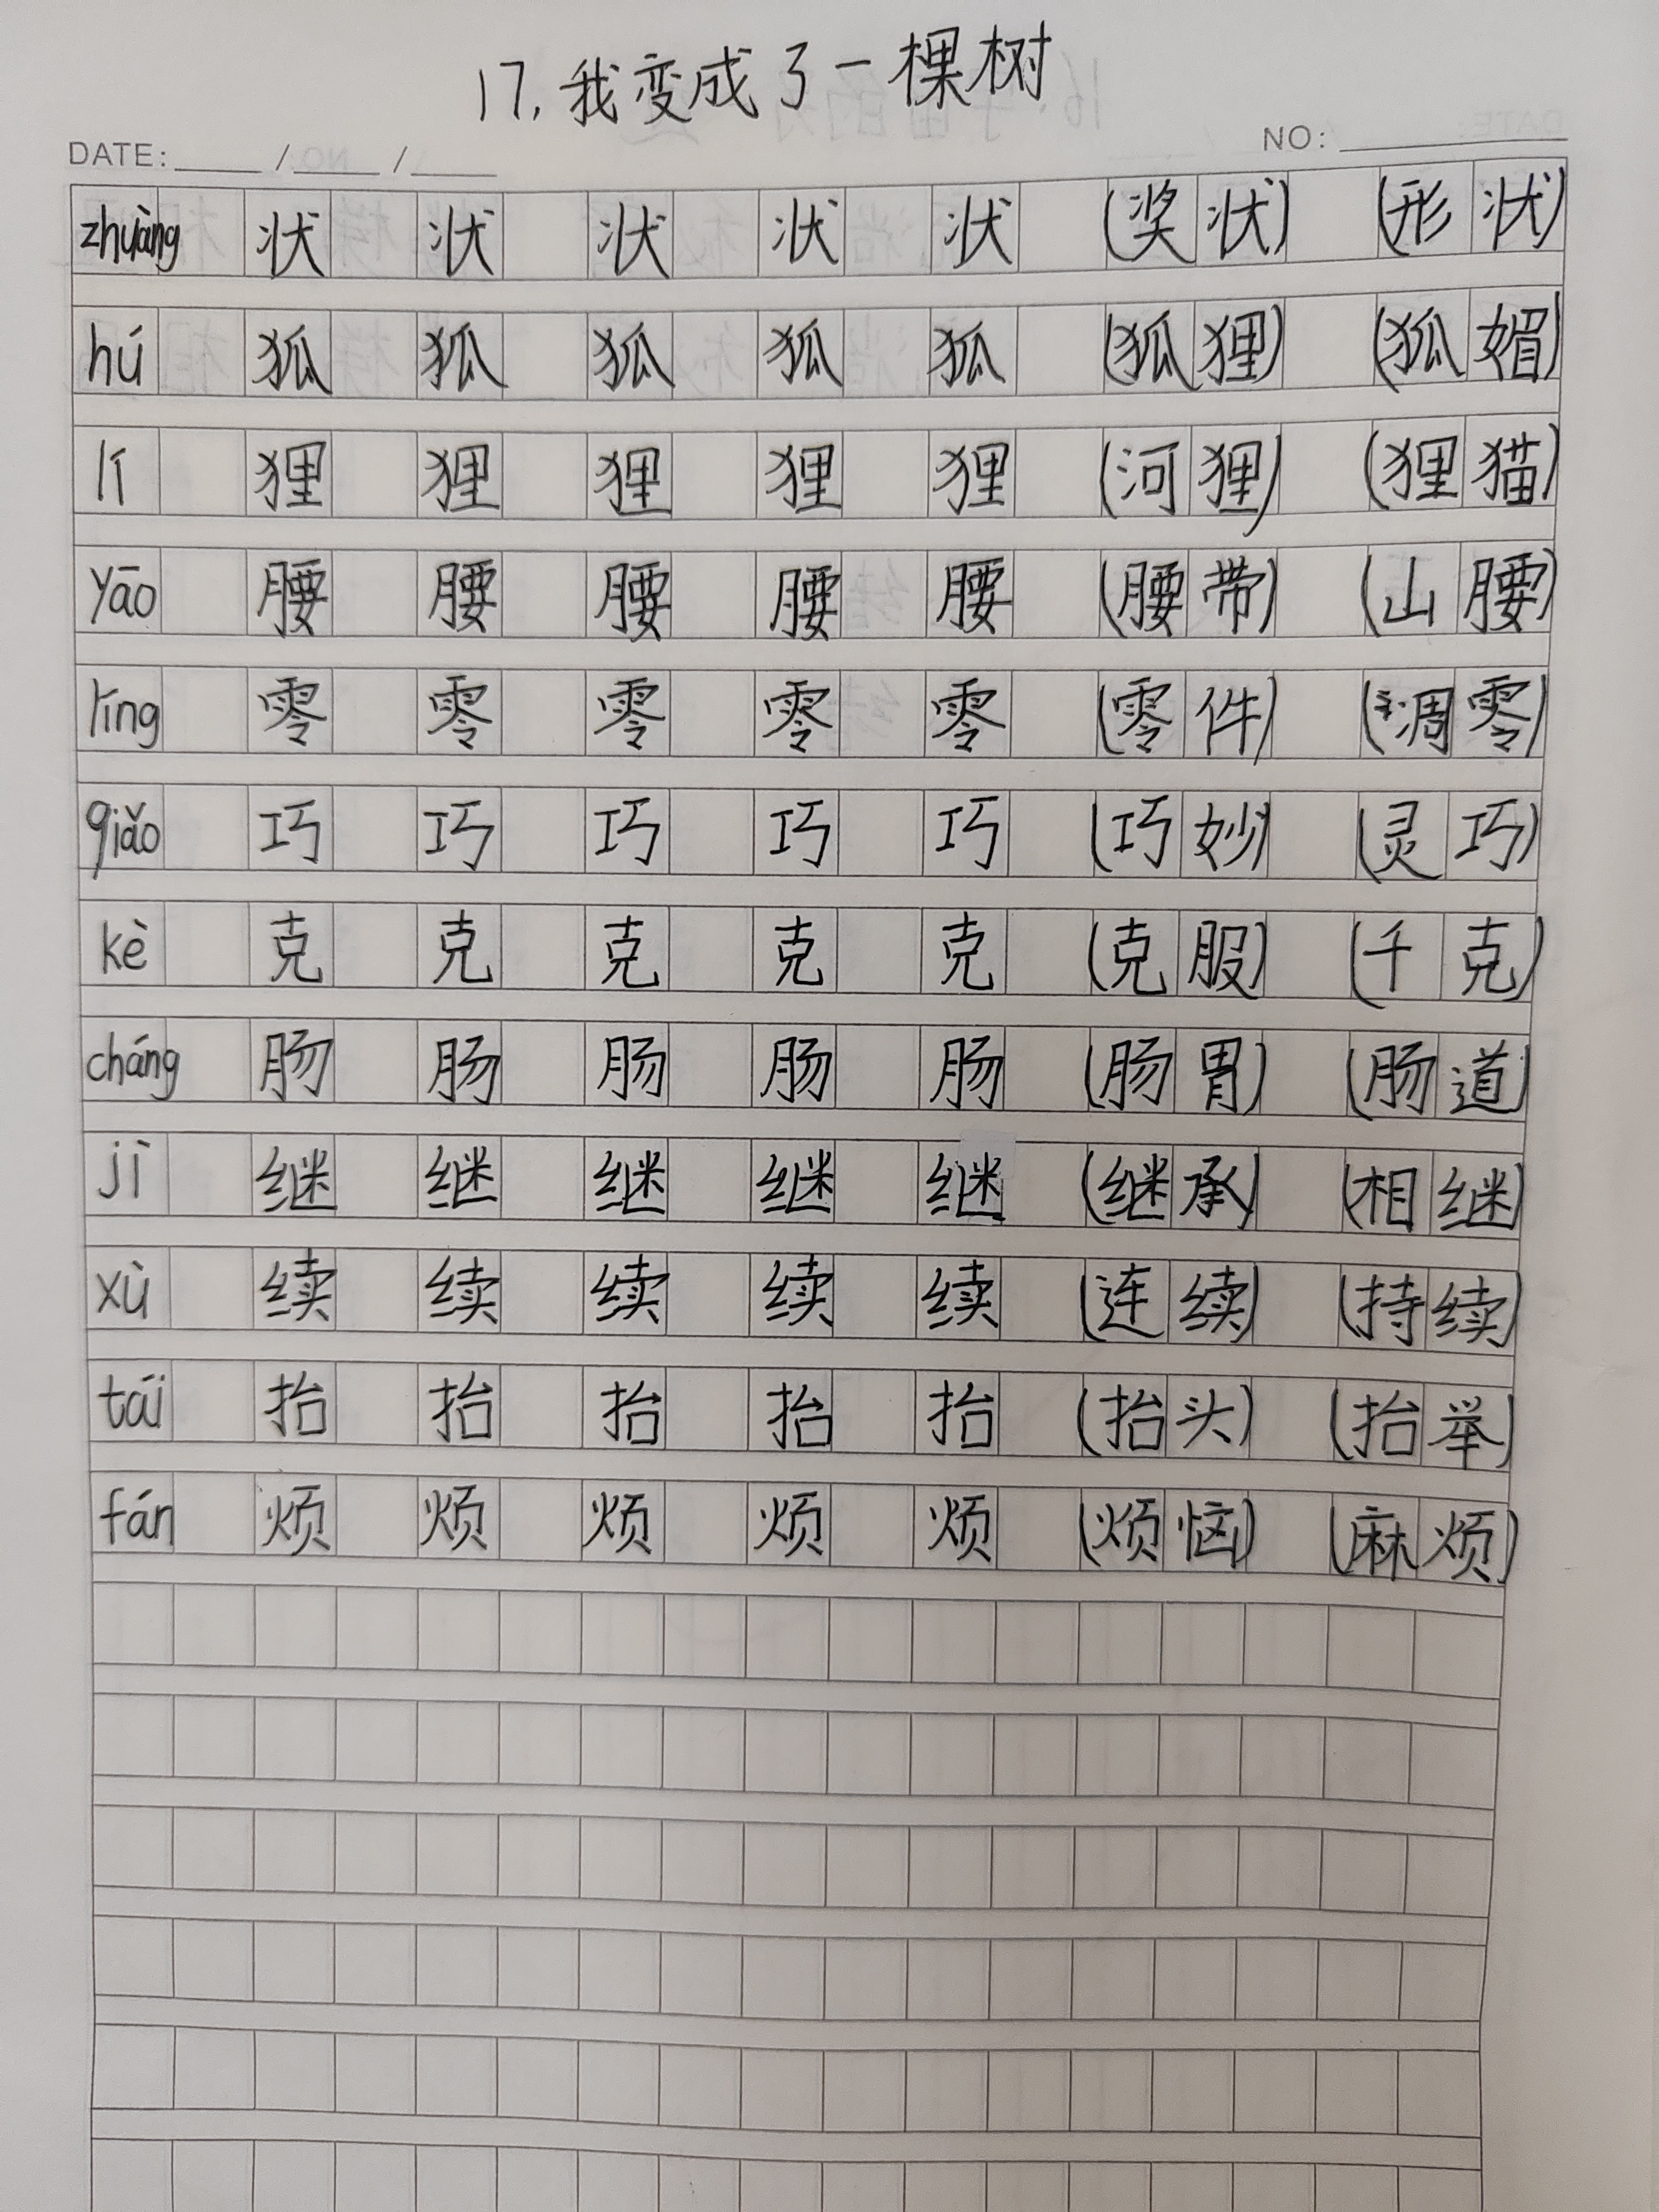 17.我变成了一棵树
DATE: / / NO:
zhuàng 状 状 状 状 状 (奖状) (形状)
hú 狐 狐 狐 狐 狐 (狐狸) (狐媚)
lí 狸 狸 狸 狸 狸 (河狸) (狸猫)
yāo 腰 腰 腰 腰 腰 (腰带) (山腰)
líng 零 零 零 零 零 (零件) (凋零)
qiǎo 巧 巧 巧 巧 巧 (巧妙) (灵巧)
kè 克 克 克 克 克 (克服) (千克)
cháng 肠 肠 肠 肠 肠 (肠胃) (肠道)
jì 继 继 继 继 继 (继承) (相继)
xù 续 续 续 续 续 (连续) (持续)
tái 抬 抬 抬 抬 抬 (抬头) (抬举)
fán 烦 烦 烦 烦 烦 (烦恼) (麻烦)